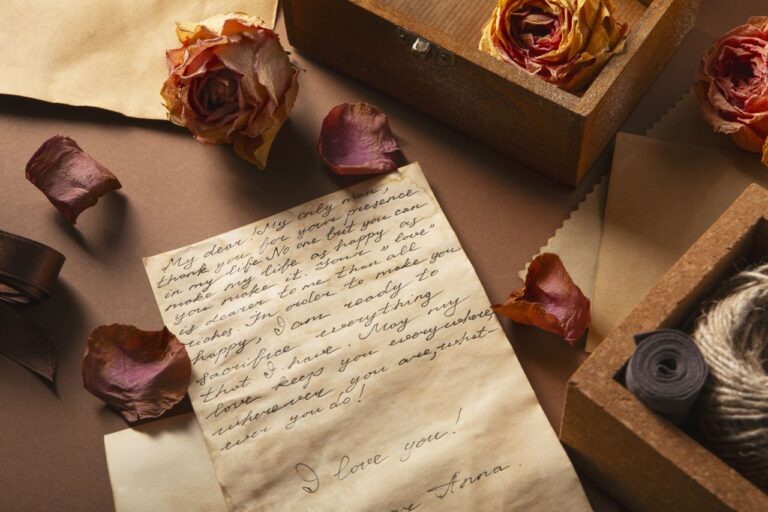 My dear! My only man,
thank you for your presence
in my life. No one but you can
make my life as happy as
you make it. Your "love"
is dearer to me than all
riches. In order to make you
happy, I am ready to
sacrifice everything
that I have. May my
love keep you everywhere,
wherever you are, what-
ever you do!
I love you!
Anna.